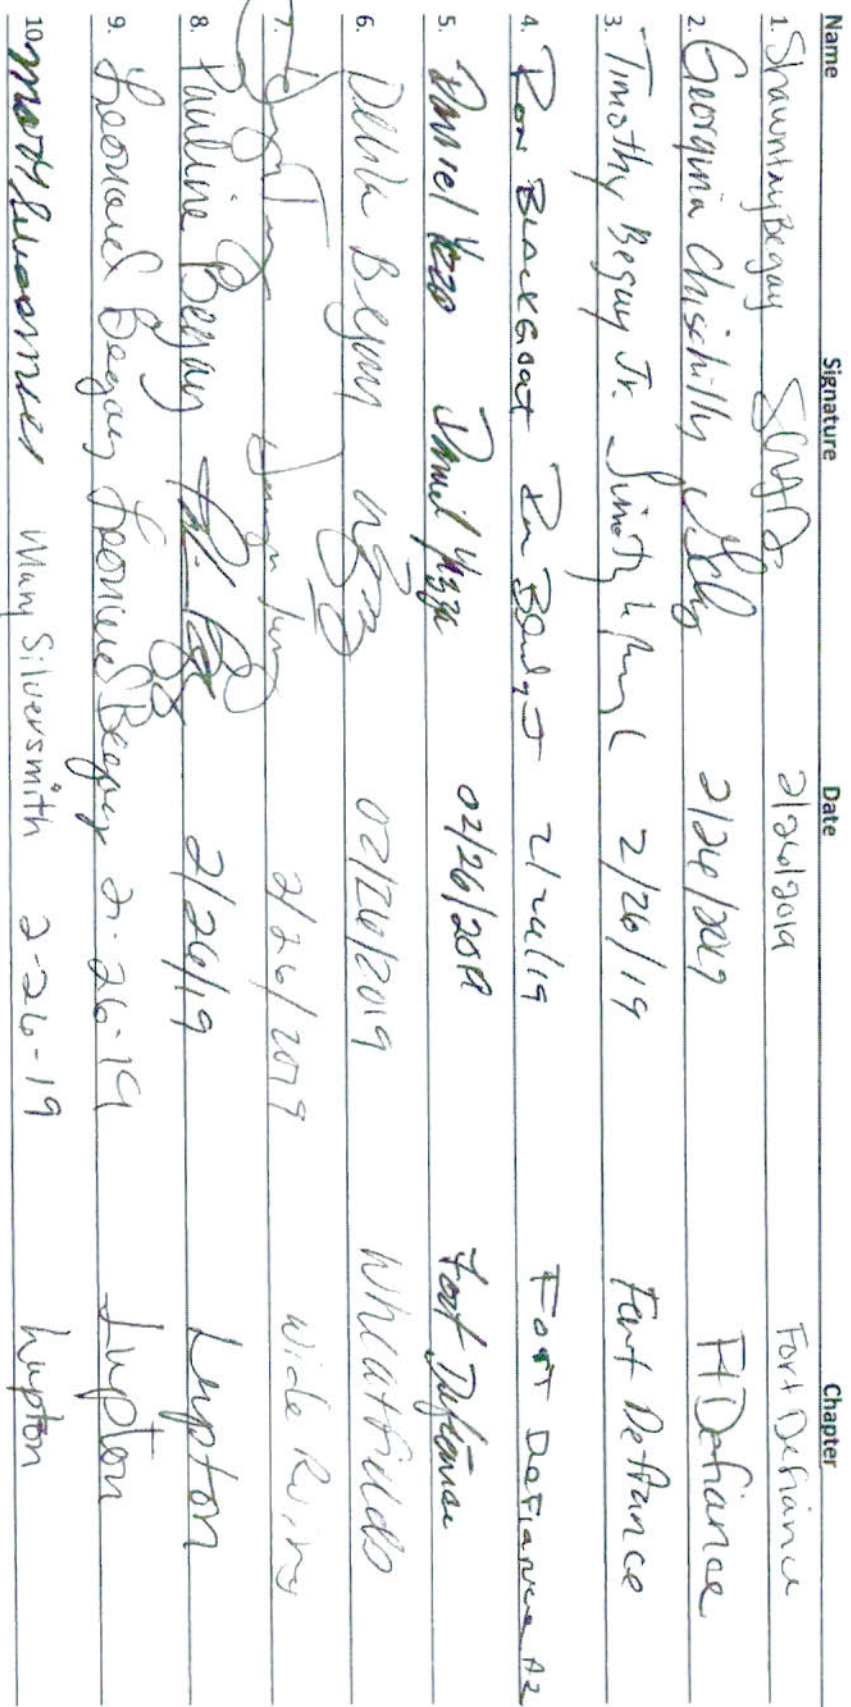 Name Signature Date Chapter
1. Shawntay Begay 2/26/2019 Fort Defiance
2. Georgina Chischilly 2/26/2019 Ft Defiance
3. Timothy Begay Jr. 2/26/19 Fort Defiance
4. Ron BlackGoat 2/26/19 Fort Defiance AZ
5. Daniel Yazzo Daniel Yazza 02/26/2019 Fort Defiance
6. Begay 02/26/2019 Wheatfields
7. 2/26/2019 Wide Ruins
8. Pauline Begay 2/26/19 Lupton
9. Leonard Begay Leonard Begay 2-26-19 Lupton
10. Mary Silversmith 2-26-19 Lupton